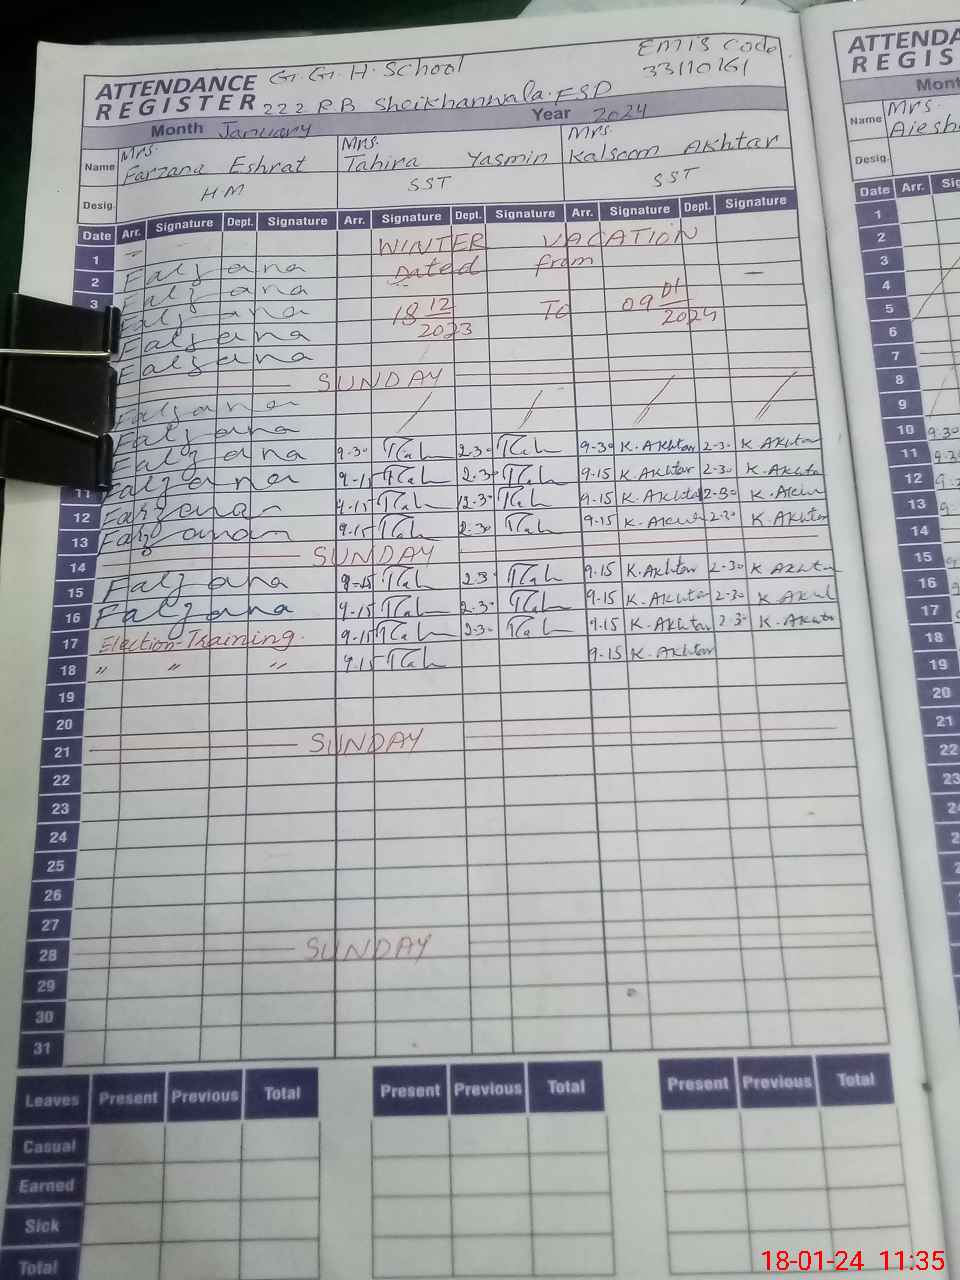 G.G.H. School
EMIS Code
33110161
ATTENDANCE
REGISTER
222 R.B Sheikhanwala. FSD
Month January Year 2024
Name Mrs. Farzana Eshrat Mrs. Tahira Yasmin Mrs. Kalsoom Akhtar
Desig. HM SST SST
Date Arr. Signature Dept. Signature Arr. Signature Dept. Signature Arr. Signature Dept. Signature
WINTER VACATION
1 Farzana
Dated from
2 Farzana
3 Farzana
18 12/2023 To 09 01/2024
Farzana
Farzana
SUNDAY
Farzana
Farzana
Farzana 9-30 Tah 2-30 Tah 9-30 K. Akhtar 2-30 K Akhtar
11 Farzana 9-15 Tah 2-30 Tah 9-15 K Akhtar 2-30 K. Akhta
12 Farzana 9-15 Tah 12-30 Tah 9-15 K. Akhta 2-30 K. Akhtar
13 Farzana 9-15 Tah 2-30 Tah 9-15 K. Akhtar 2-30 K. Akhtar
14 SUNDAY
15 Farzana 9-15 Tah 2-3 Tah 9-15 K. Akhtar 2-30 K Akhtar
16 Farzana 9-15 Tah 2-30 Tah 9-15 K. Akhtar 2-30 K Akhtar
17 Election Training. 9-15 Tah 2-30 Tah 9-15 K. Akhtar 2-30 K. Akhtar
18 " " " 9-15 Tah 9-15 K. Akhtar
19
20
21 SUNDAY
22
23
24
25
26
27
28 SUNDAY
29
30
31
Leaves Present Previous Total Present Previous Total Present Previous Total
Casual
Earned
Sick
Total
ATTENDA
REGIS
Mont
Name Mrs. Aiesh
Desig.
Date Arr. Sig
1
2
3
4
5
6
7
8
9
10 9.30
11
12
13
14
15
16
17
18
19
20
21
22
23
18-01-24 11:35